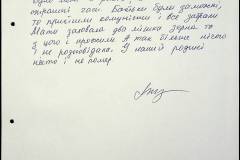 страшні часи. Батьки були заможні,
то прийшли комуністи і все забрали
Мати заховала два мішка зерна то
з цього і прожили А так більше нічого
не розповідала. У нашій родині
ніхто і не помер.